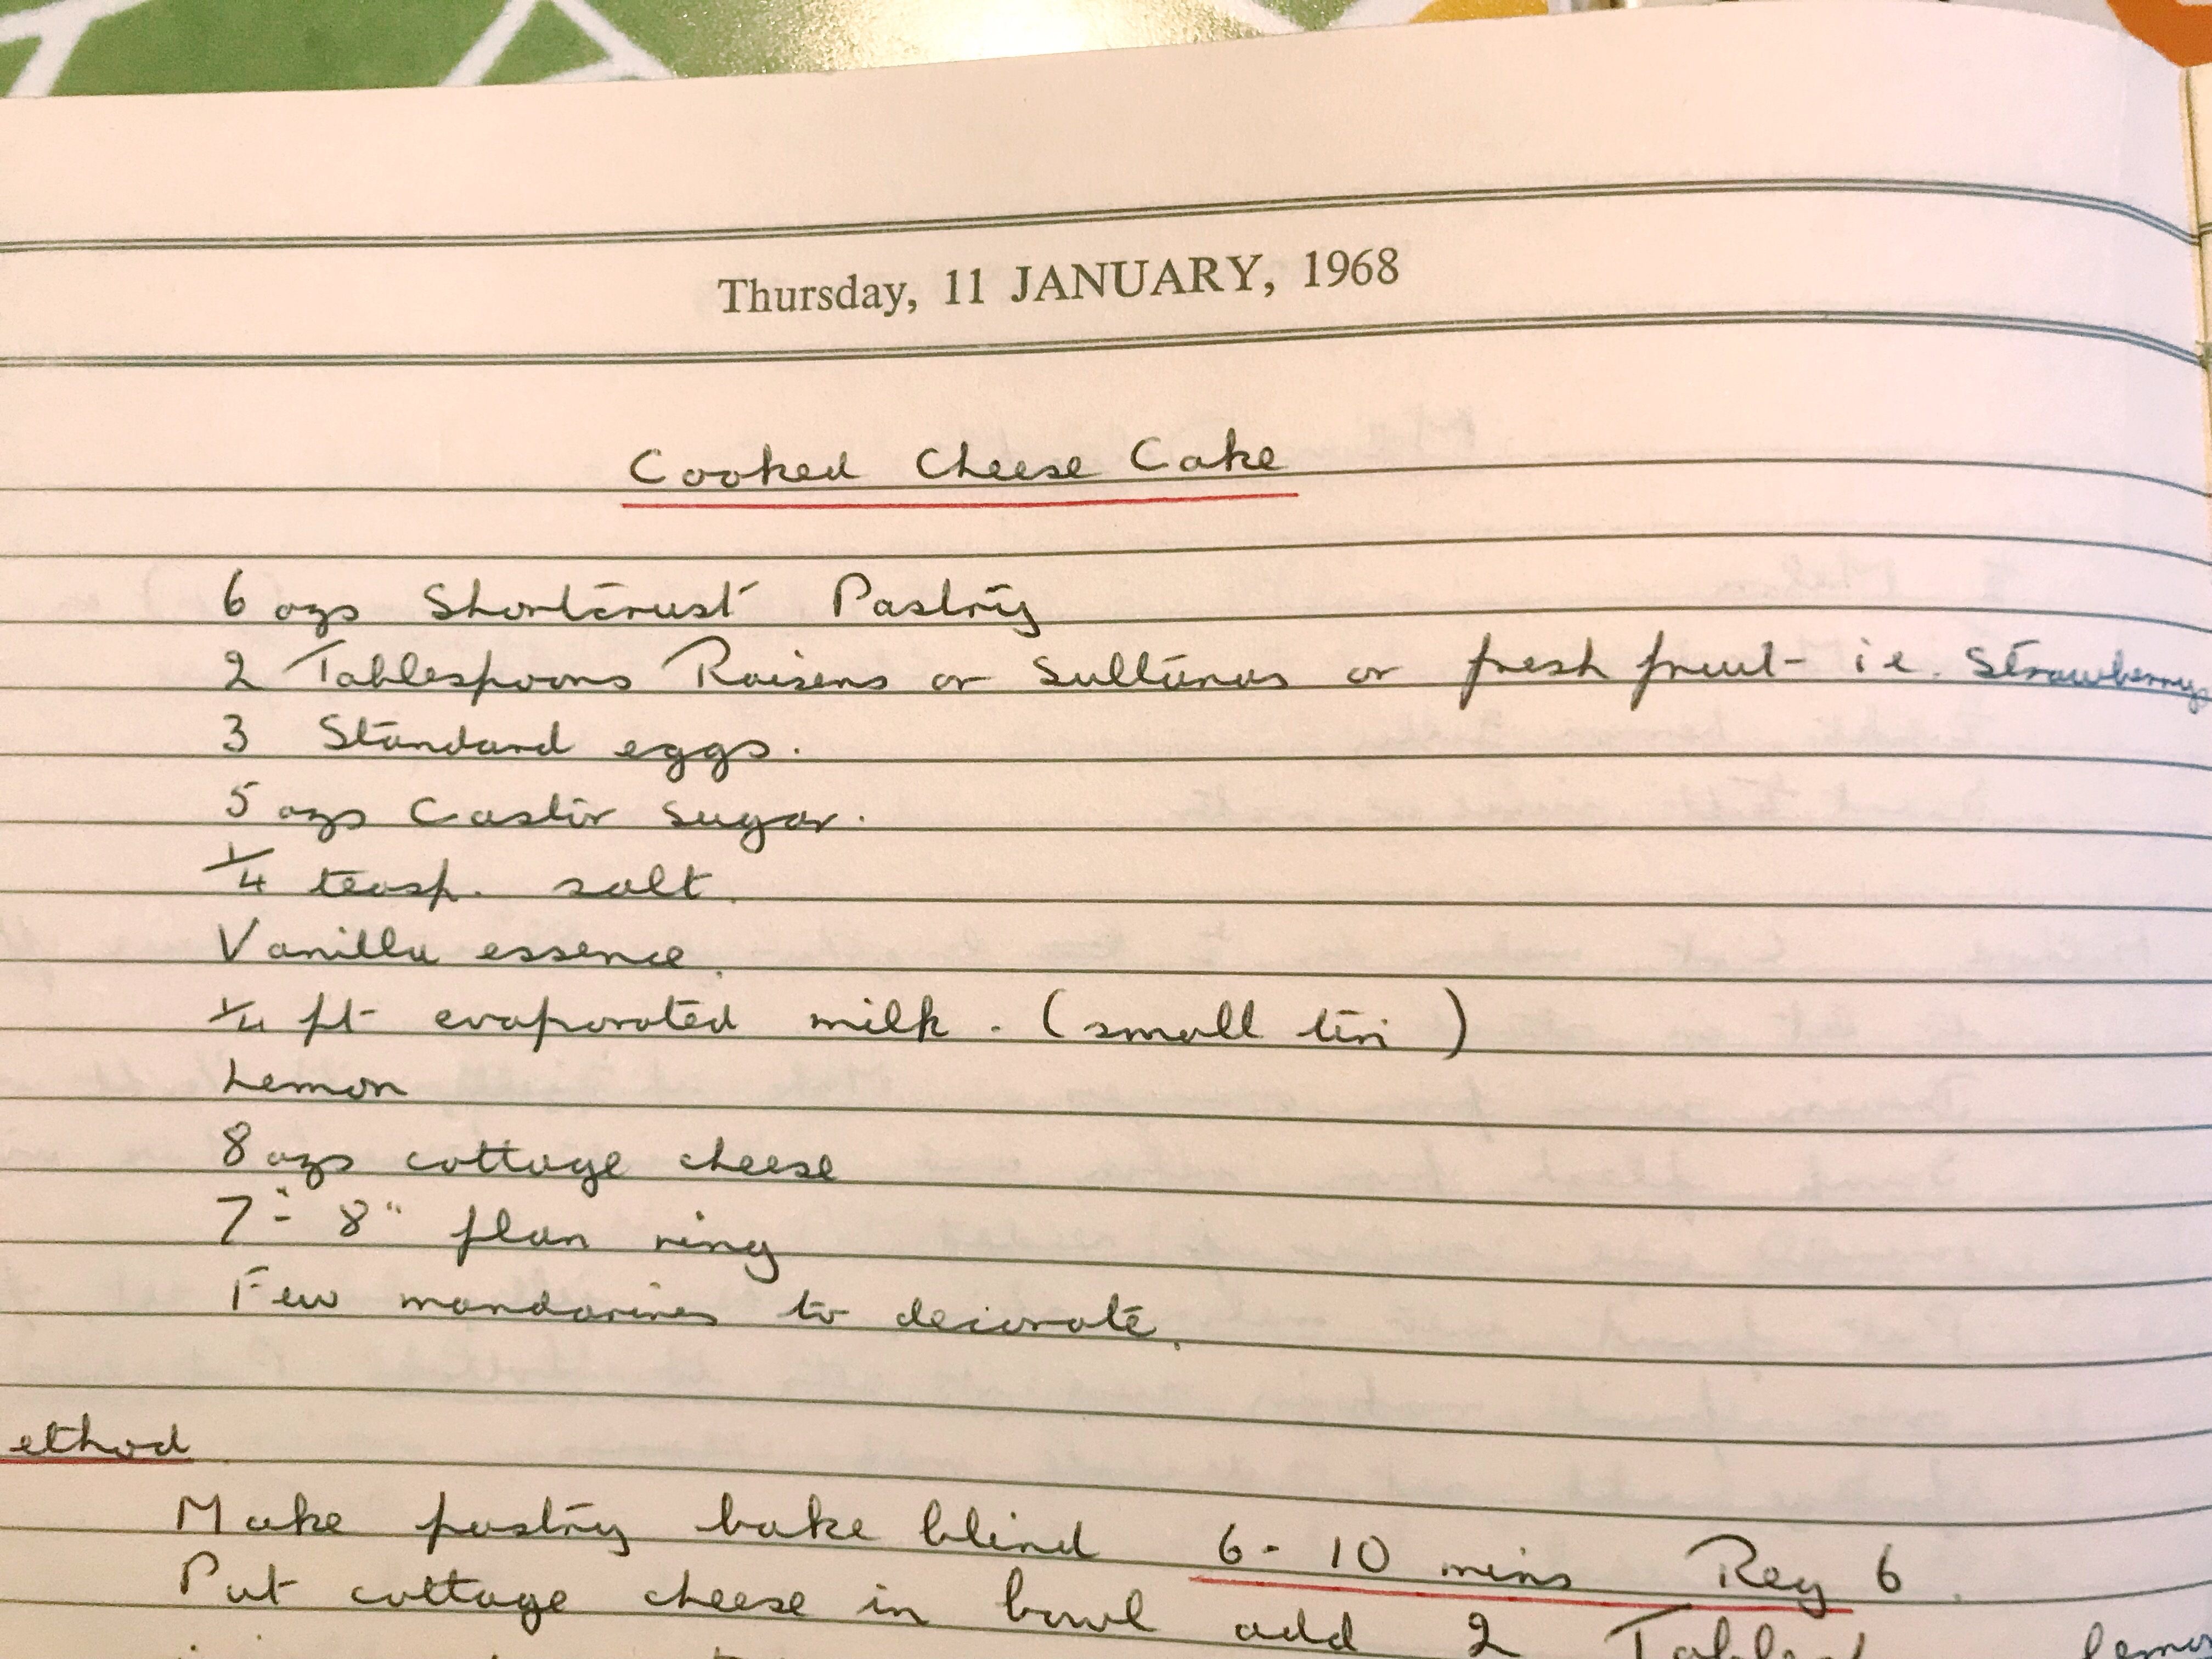 Thursday, 11 JANUARY, 1968
Cooked Cheese Cake
6 ozs Shortcrust Pastry
2 Tablespoons Raisens or Sultanas or fresh fruit - i.e. Strawberrys
3 Standard eggs.
5 ozs Castor Sugar.
1/4 teasp. salt.
Vanilla essence.
1/4 pt evaporated milk. (small tin)
Lemon
8 ozs cottage cheese
7" - 8" flan ring
Few mandarines to decorate.
ethod
Make pastry bake blind 6 - 10 mins Reg 6.
Put cottage cheese in bowl add 2